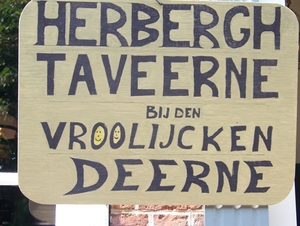 HERBERGH
TAVEERNE
BIJ DEN
VROOLIJCKEN
DEERNE